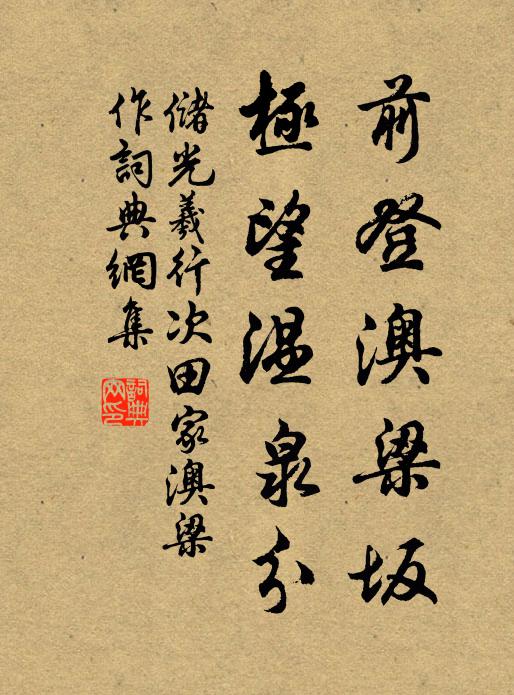 前登澳梁坂
極望溫泉分
儲光羲行次田家澳梁
作詞典網集
詞典
文印